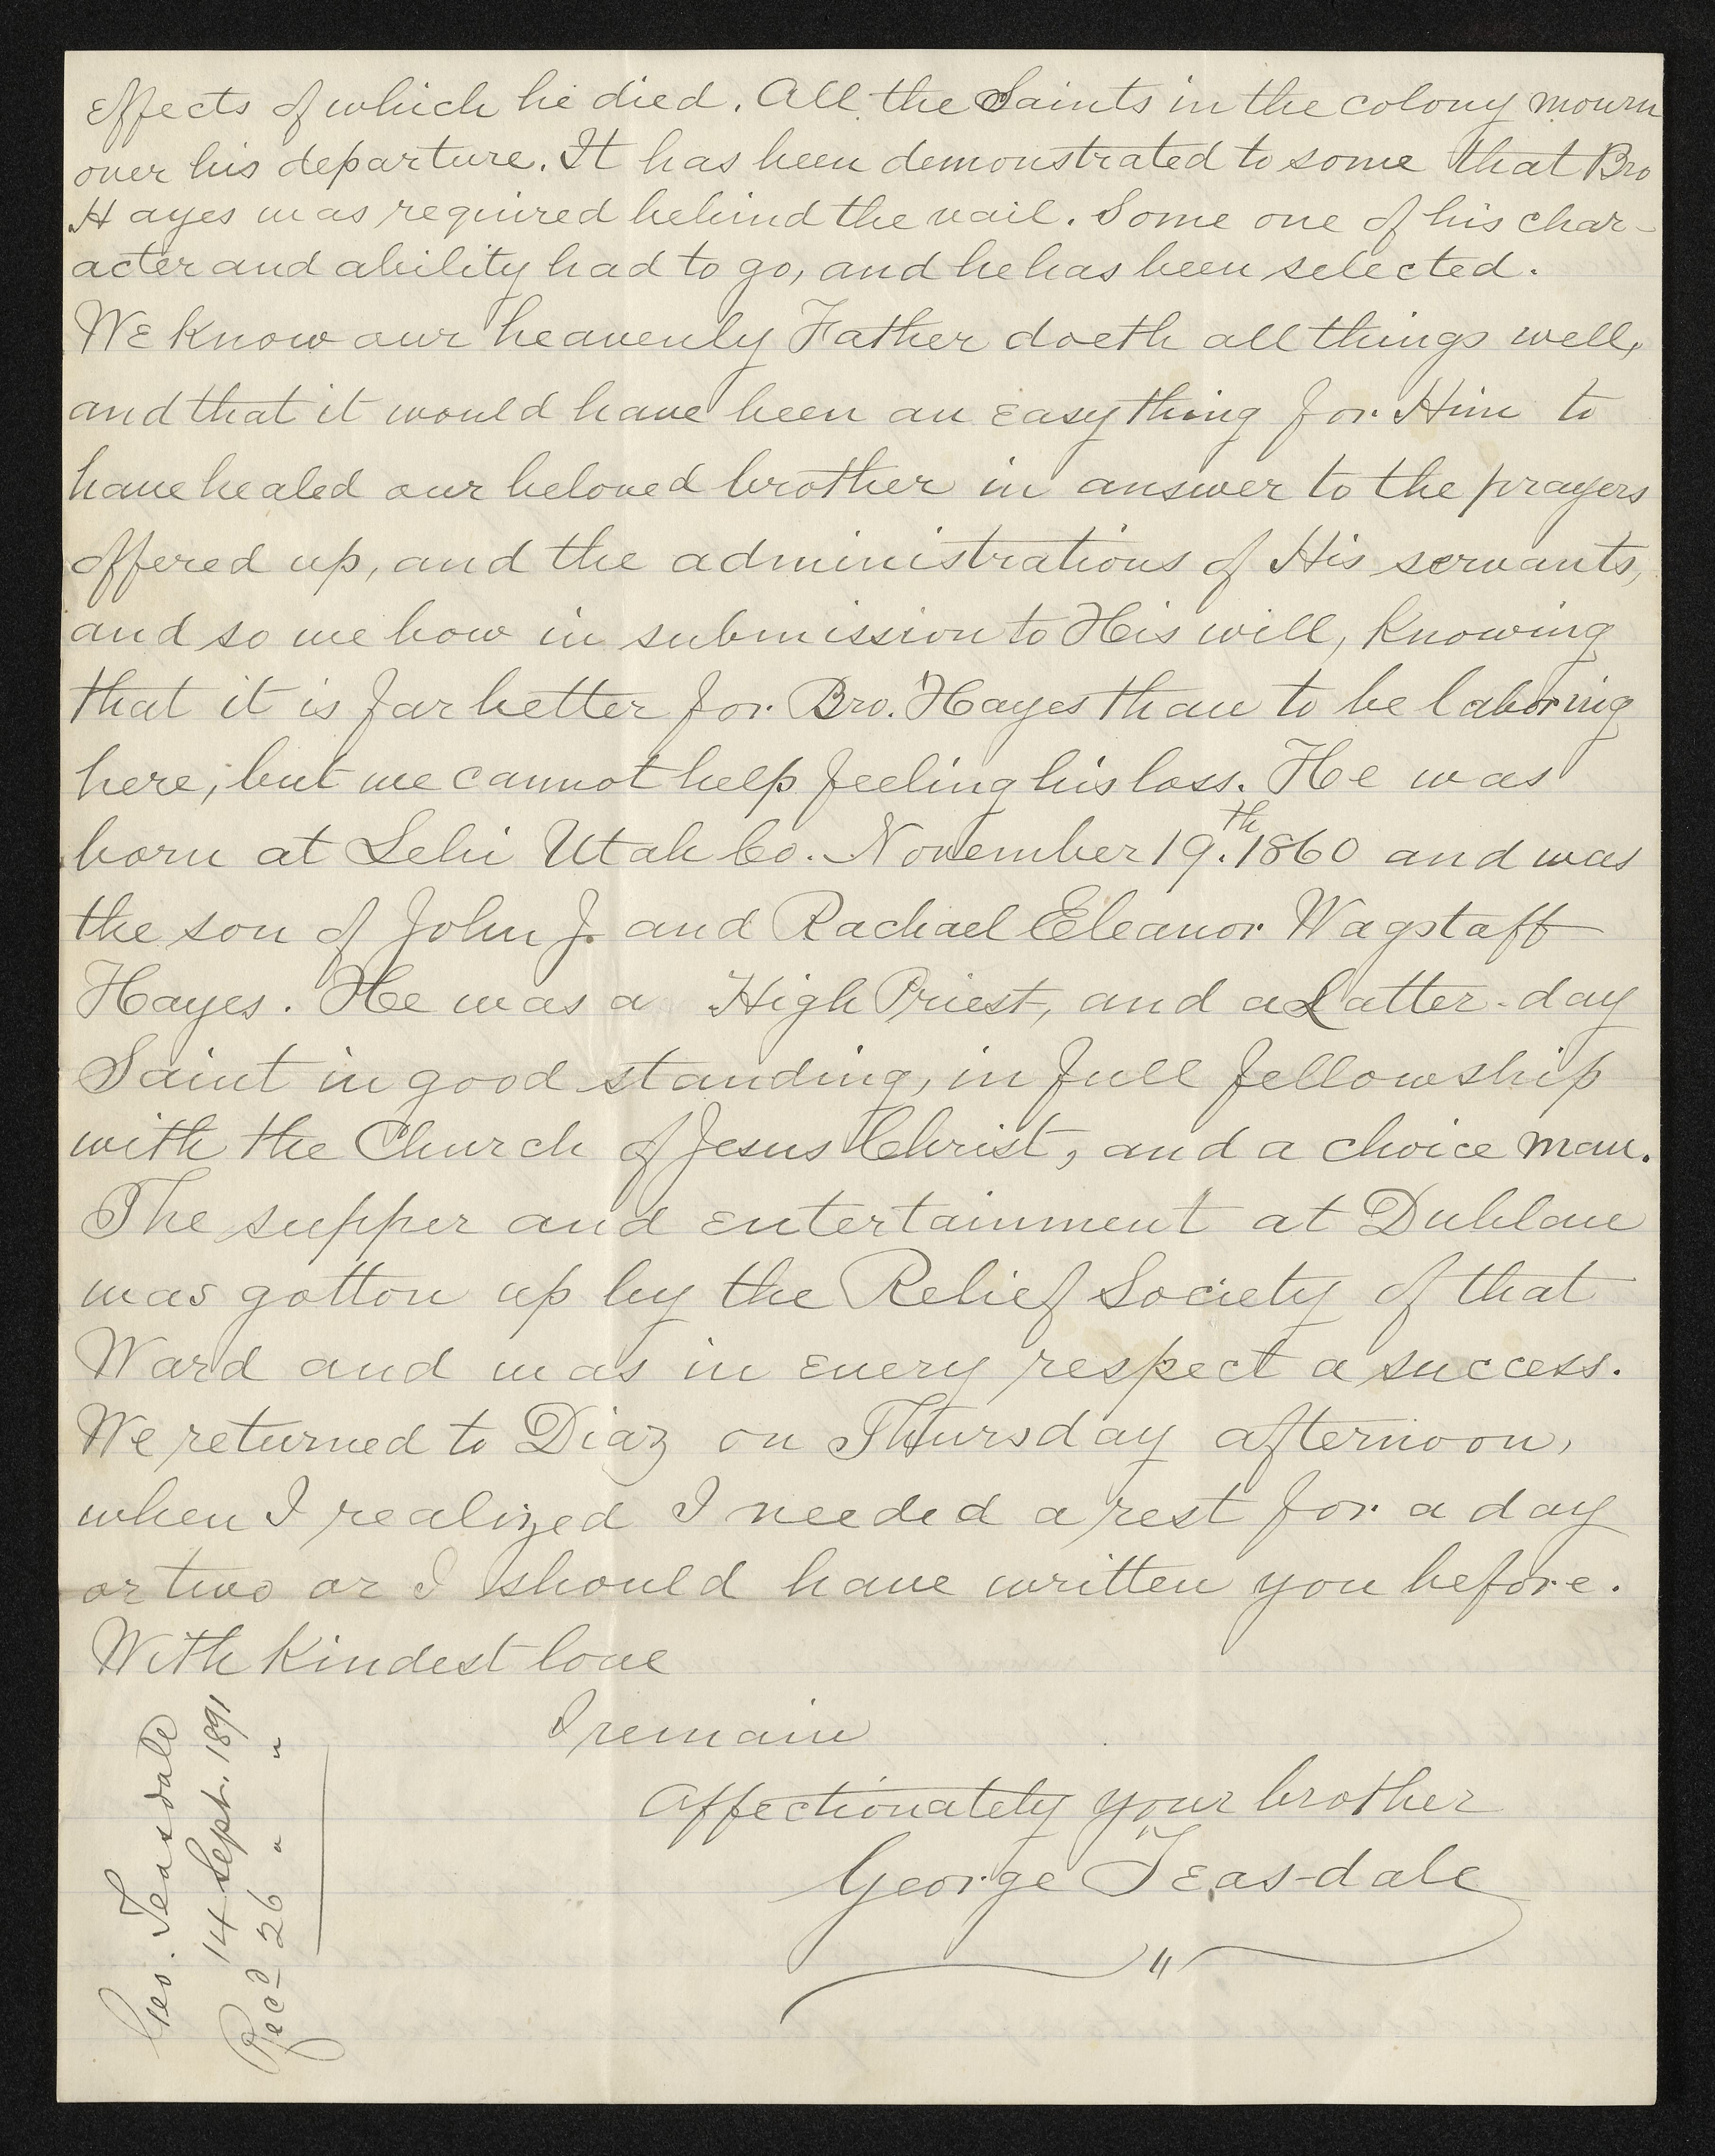 effects of which he died. All the Saints in the colony mourn
over his departure. It has been demonstrated to some that Bro
Hayes was required behind the vail. Some one of his char-
acter and ability had to go, and he has been selected.
We know our heavenly Father doeth all things well,
and that it would have been an easy thing for Him to
have healed our beloved brother in answer to the prayers
offered up, and the administrations of His servants,
and so we bow in submission to His will, knowing
that it is far better for Bro. Hayes than to be laboring
here, but we cannot help feeling his loss. He was
born at Lehi Utah Co. November 19.th 1860 and was
the son of John J. and Rachael Eleanor Wagstaff
Hayes. He was a High Priest, and a Latter-day
Saint in good standing, in full fellowship
with the Church of Jesus Christ, and a choice man.
The supper and entertainment at Dublan
was gotton up by the Relief Society of that
Ward and was in every respect a success.
We returned to Diaz on Thursday afternoon,
when I realized I needed a rest for a day
or two or I should have written you before.
With kindest love
I remain
Affectionately your brother
George Teasdale
"
Geo. Teasdale
14 Sept. 1891
Recd 26 " "